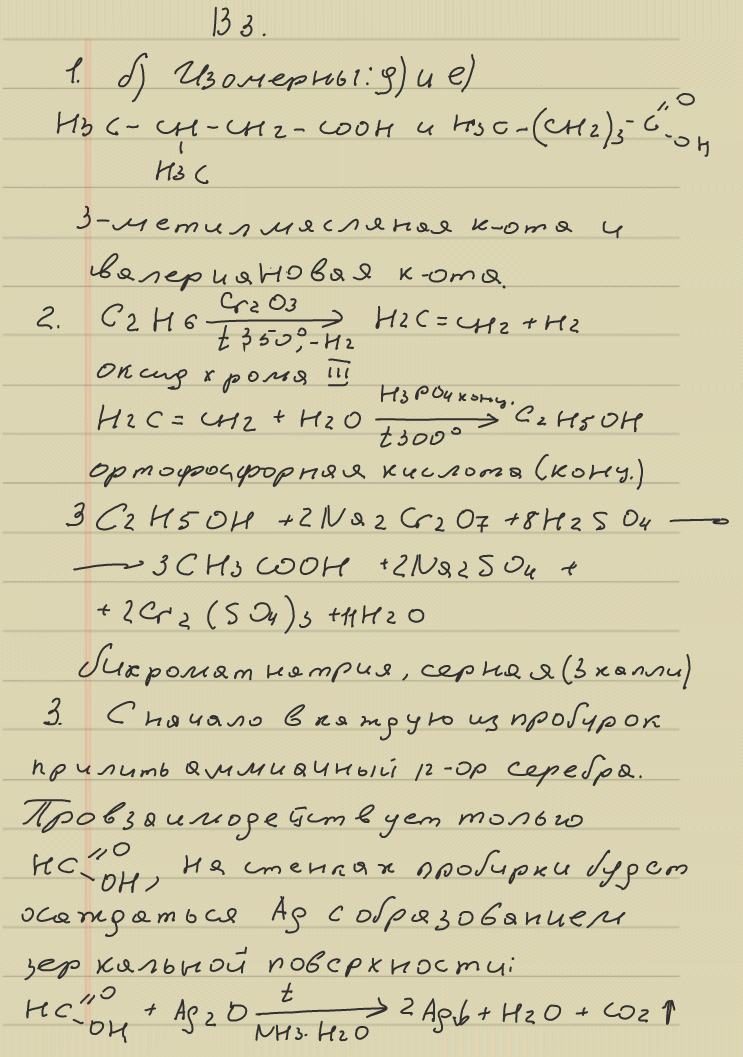 В 3.
1. б) Изомерны: д) и е)
H3C - CH - CH2 - COOH и H3C - (CH2)3 - C =O
- OH
H3C
3-метилмасляная к-ота и
валериановая к-ота.
2. C2H6 Cr2O3 → t 350°, -H2 H2C = CH2 + H2
оксид хрома III
H2C = CH2 + H2O H3PO4 конц. → t 300° C2H5OH
ортофосфорная кислота (конц.)
3 C2H5OH + 2Na2Cr2O7 + 8H2SO4 —
— 3CH3COOH + 2Na2SO4 +
+ 2Cr2(SO4)3 + 11H2O
бихромат натрия, серная (3 капли)
3. Сначало в каждую из пробирок
прилить аммиачный р-ор серебра.
Провзаимодействует только
HC =O - OH, на стенках пробирки будет
осаждаться Ag с образованием
зеркальной поверхности:
HC =O - OH + Ag2O t → NH3·H2O 2Ag↓ + H2O + CO2↑